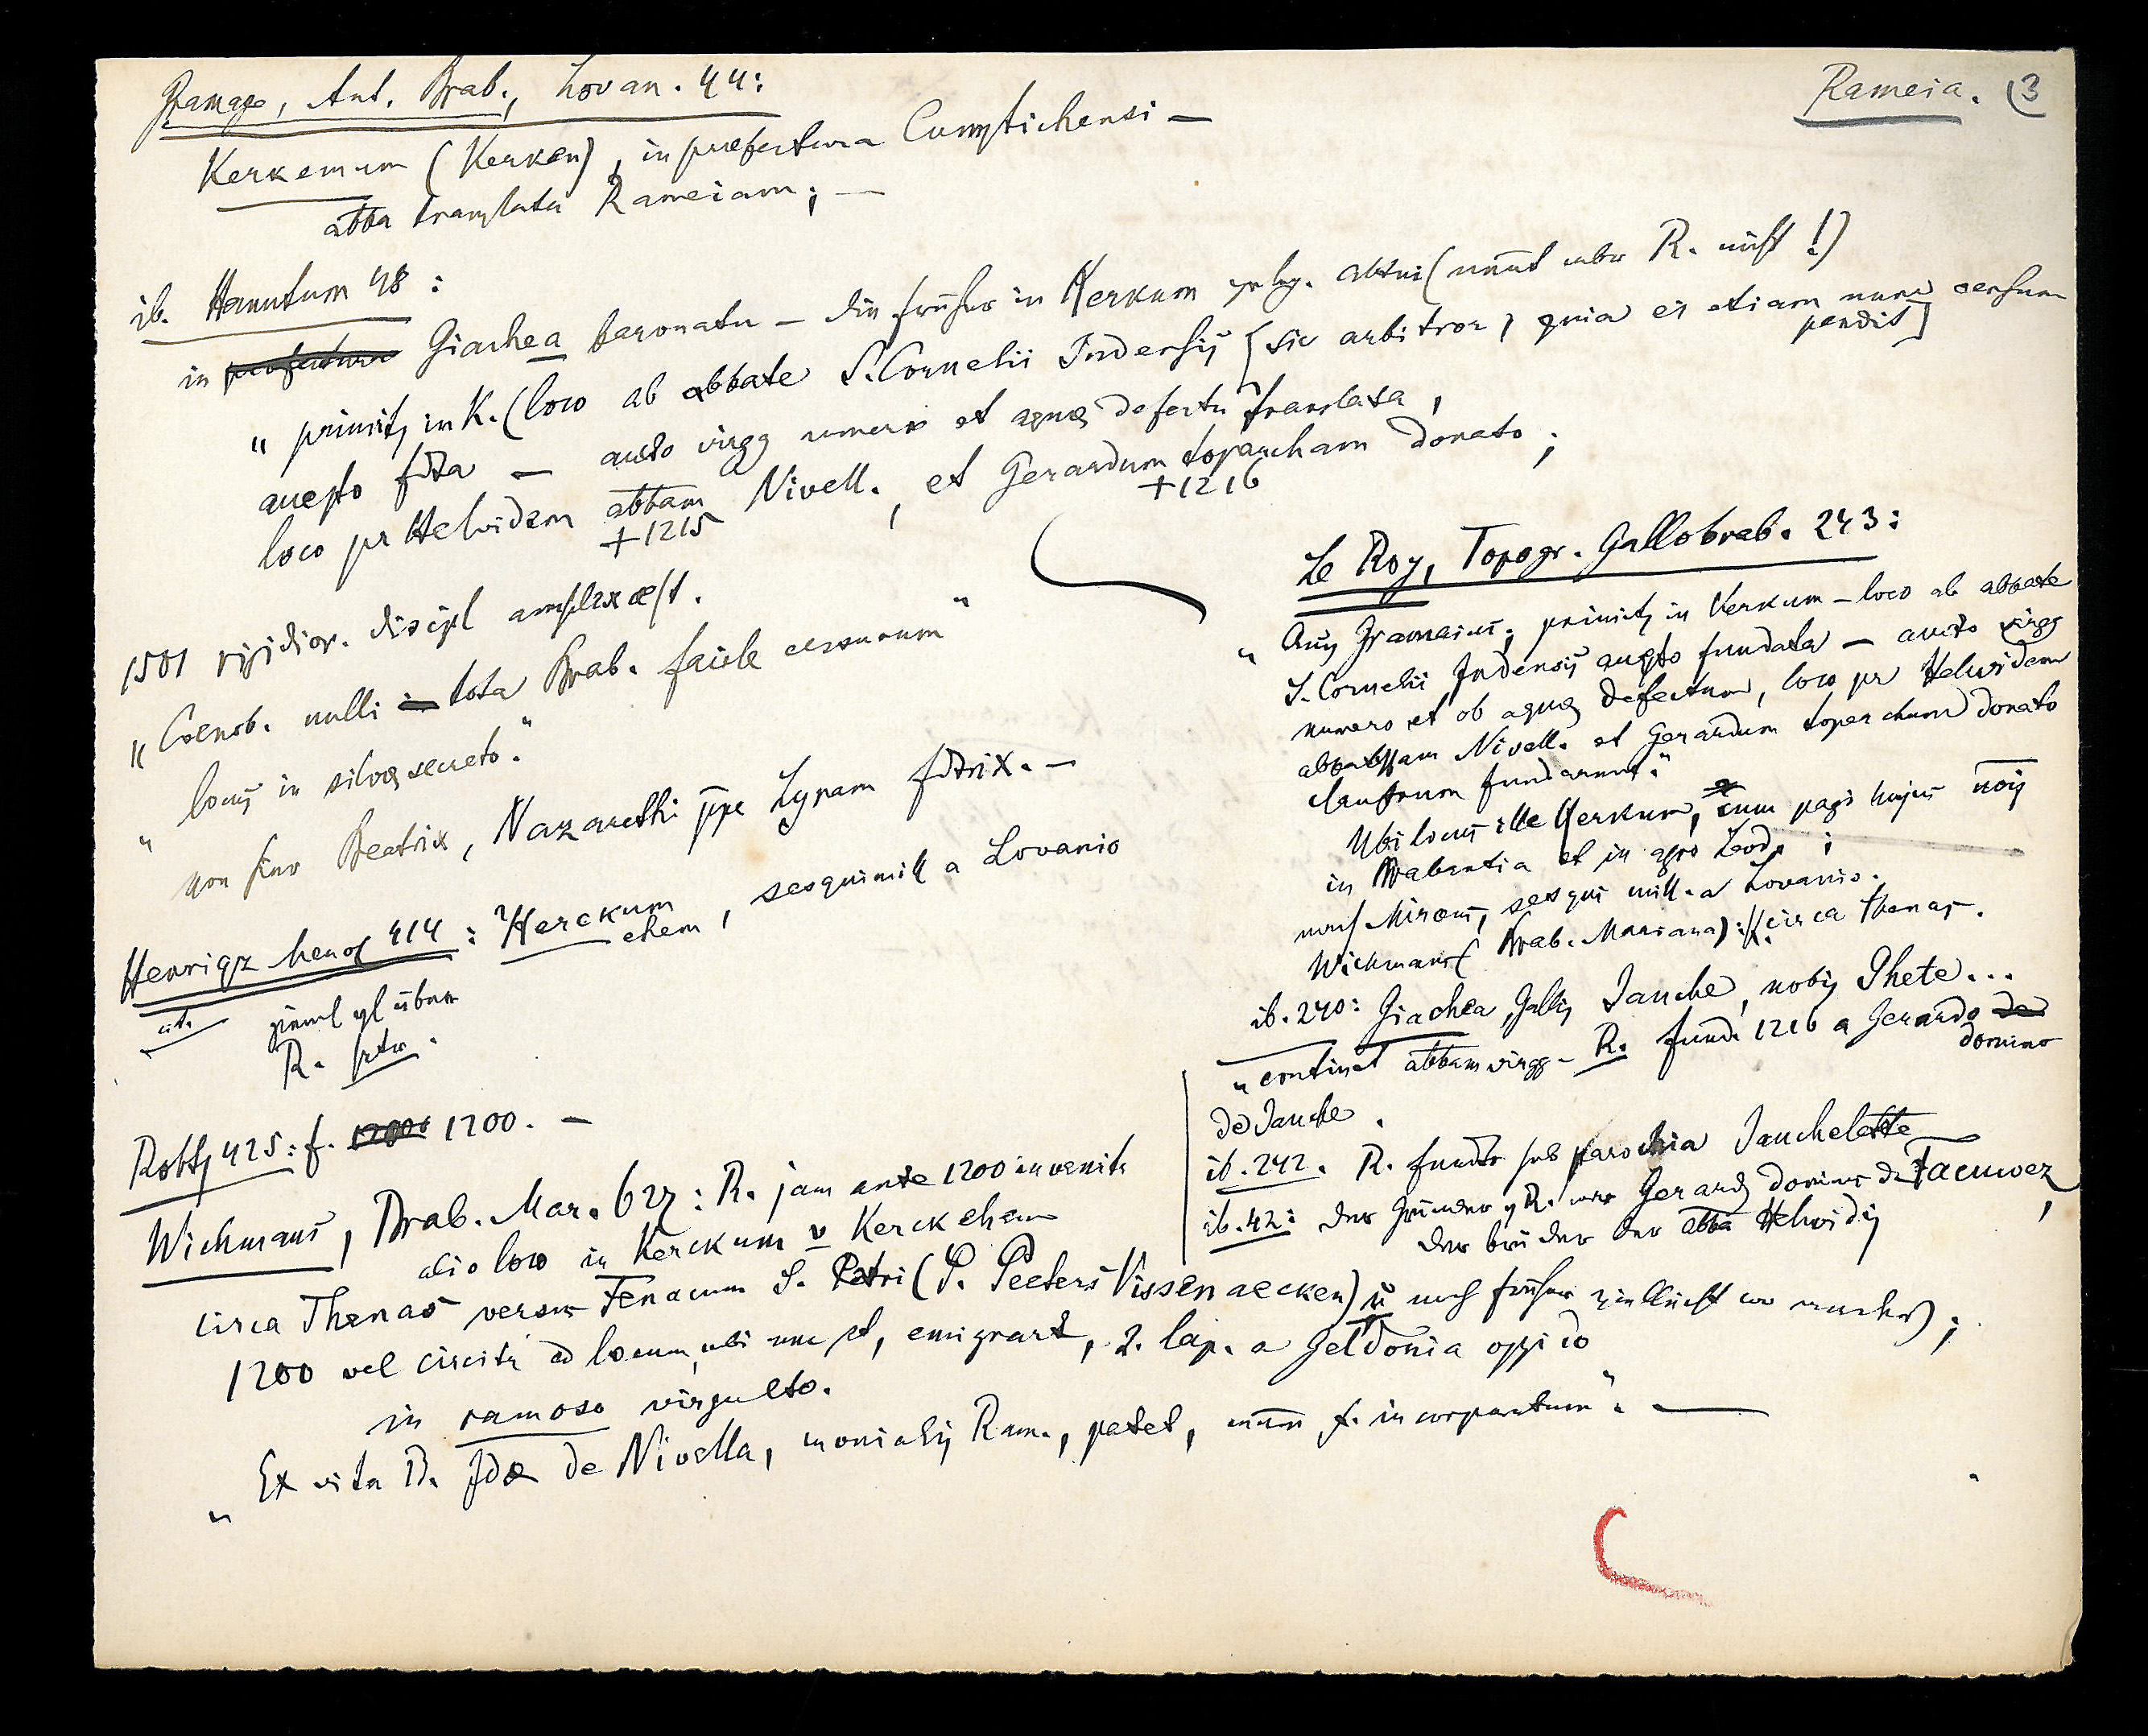 Rameia. (3
Gramaye, Ant. Brab., Lovan. 44:
Kerkemum (Kerken), in praefectura Cumptichensi —
abba translata Rameiam; —
ib. Hannutum 48:
in praefectura Giachea baronatu — die früher in Kerkum geleg. Abtei (nennt aber R. nicht!)
"primitus in K. (loco ab abbate S. Cornelii Indensis [sic arbitror, quia ei etiam nunc censum
pendit]
fdta — aucto virgg numero et aquae defectu translata,
loco per Helvidem abbam Nivell., et Gerardum toparcham donato;
+1215 +1216
1501 rigidior. discipl amplexa est.
"Coenob. nulli in tota Brab. facile cessurum"
"locus in silva secreto."
Beatrix, Nazarethi ppe Lyram fdtrix. —
414: "Kerckum
chem, sesquimill a Lovanio
R.
425: f. 1200. —
Wichmans, Brab. Mar. 627: R. jam ante 1200 invenitr
alio loco in Kerckum v Kerckehem
circa Thenas versus Fenacum S. Petri (S. Peeters Vissenaecken) u noch früher vielleicht wo anders);
1200 vel circiter ad locum, ubi nunc est, emigrart, 2. lap. a Geldonia oppido
in ramoso virgulto.
"Ex vita B. Idae de Nivella, monialis Ram., patet, f. incorporatum". —
Le Roy, Topogr. Gallobrab. 243:
"Gramaius; primitus in Kerkum — loco ab abbate
S. Cornelii Indensis fundata — aucto virgg
numero et ob aquae defectum, loco per Helvidem
abbatissam Nivell. et Gerardum toparcham donato
claustrum fundarunt."
Ubi locus ille Kerkum, cum pagi hujus nois
in Brabantia et in agro Leod.;
nach Miraeus, sesqui mill. a Lovanio.
Wichmans (Brab. Mariana): K. circa Thenas.
ib. 240: Giachea, Gallis Jauche, nobis Ghete...
"continet abbam virgg — R. fund. 1216 a Gerardo de
domino
de Jauche.
ib. 242. R. sub parochia Jauchelette
ib. 42: der Gründer v R. war Gerard dominus de Jacuwez,
der bruder der abba Helvidis